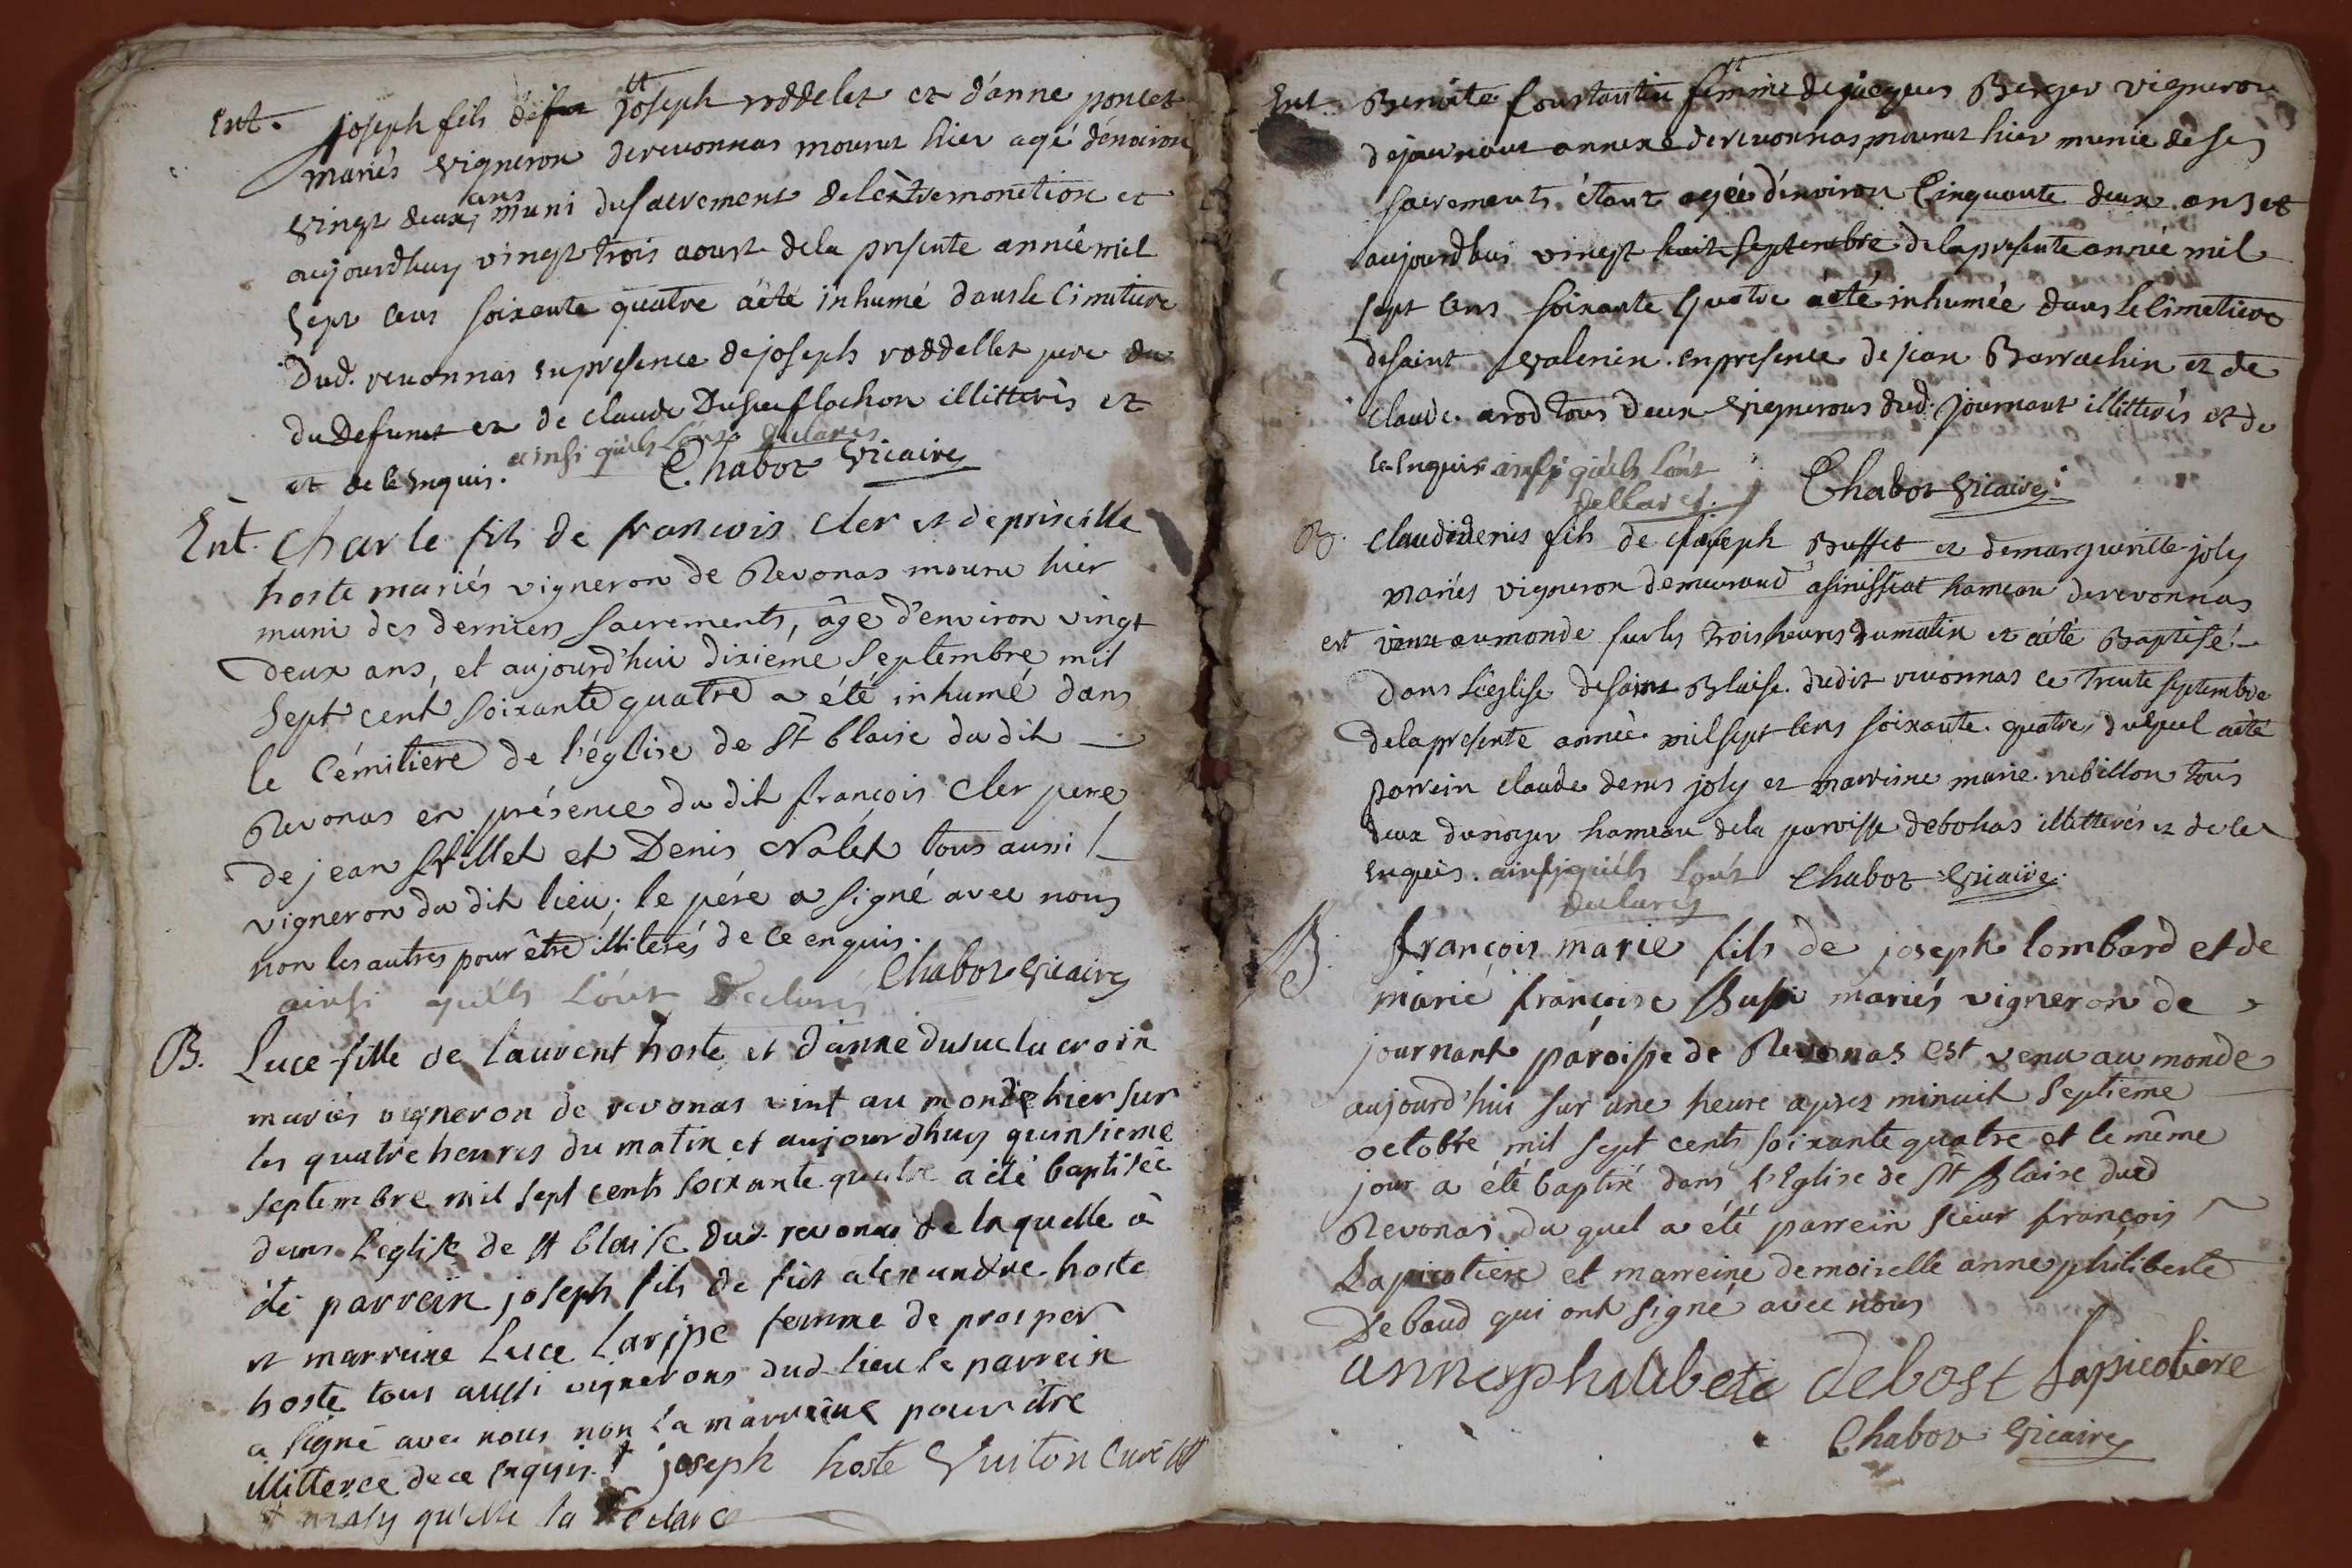 Ent. joseph fils de joseph roddelet et d'anne poncet
mariés vigneron derevonnas mourut hier agé d'environ
vingt deux ans muni du sacrement de lextremonction et
aujourdhuy vingt trois aoust dela presente année mil
sept cens soixante quatre a été inhumé dans le cimetiere
dud. revonnas en presence de joseph roddellet pere du
du defunt et de claude illitterés et
et de le enquis. ainsi qu'ils l'ont declarés Chabot vicaire
Ent. Charle fils de francois Cler et de priscille
hoste mariés vigneron de Revonas mouru hier
muni des derniers sacrements, âge d'environ vingt
deux ans, et aujourd'hui dixieme septembre mil
sept cent soixante quatre a été inhumé dans
le cémitiere de l'église de st blaise du dit
Revonas en présence du dit françois Cler pere
de jean et Denis Nalet tous aussi
vigneron du dit lieu; le pére a signé avec nous
non les autres pour être illiterés de ce enquis.
ainsi qu'ils l'ont declarés Chabot vicaire
B. Luce fille de laurent hoste et d'anne dusuc lacroix
mariés vigneron de revonas vint au monde hier sur
les quatre heures du matin et aujourdhuy quinsieme
septembre mil sept cents soixante quatre a été baptisée
dans l'église de st blaise dud. revonas de laquelle à
été parrein joseph fils de fut alexandre hoste
et marreine Luce femme de prosper
hoste tous aussi vignerons dud. lieu le parrein
a signé avec nous non la marreine pour être
illitterée de ce enquis † joseph hoste Vuiton curé
† qu'elle la déclaré
Ent. Benoite femme de jacques Berger vigneron
de journant annexe de revonnas, mourut hier munie de ses
sacrements étant agée d'environ Cinquante deux ans et
aujourdhui vingt huit septembre dela presente année mil
sept cens soixante quatre a été inhumée dans le cimetiere
de saint valerien en presence de jean Barrachin et de
claude arod tous deux vignerons dud. journant illitterés et de
ce enquis ainsi qu'ils l'ont
dellarés. Chabot vicaire
B. claude denis fils de joseph Buffet et de marguerite joly
mariés vigneron demeurand a sinissiat hameau de revonnas
est venu au monde sur les trois heures du matin et a été Baptisé
dans l'eglise de saint Blaise dudit revonnas ce trente septembre
dela presente année mil sept cens soixante quatre, duquel a été
parrein claude denis joly et marreine marie rebillon tous
deux du noyer hameau dela paroisse de bohas illitterés et de le
enquis. ainsi qu'ils l'ont Chabot vicaire
declarés
B. François marie fils de joseph lombard et de
marie françoise mariés vigneron de
journant paroisse de Revonas est venu au monde
aujourd'hui sur une heure apres minuit septieme
octobre mil sept cents soixante quatre et le même
jour a été baptisé dans l'Eglise de St Blaise dud
Revonas du quel a été parrein sieur françois
Lapicotiere et marreine demoiselle anne philiberte
Debaud qui ont signé avec nous
anne philibete debost Lapicotiere
Chabot vicaire